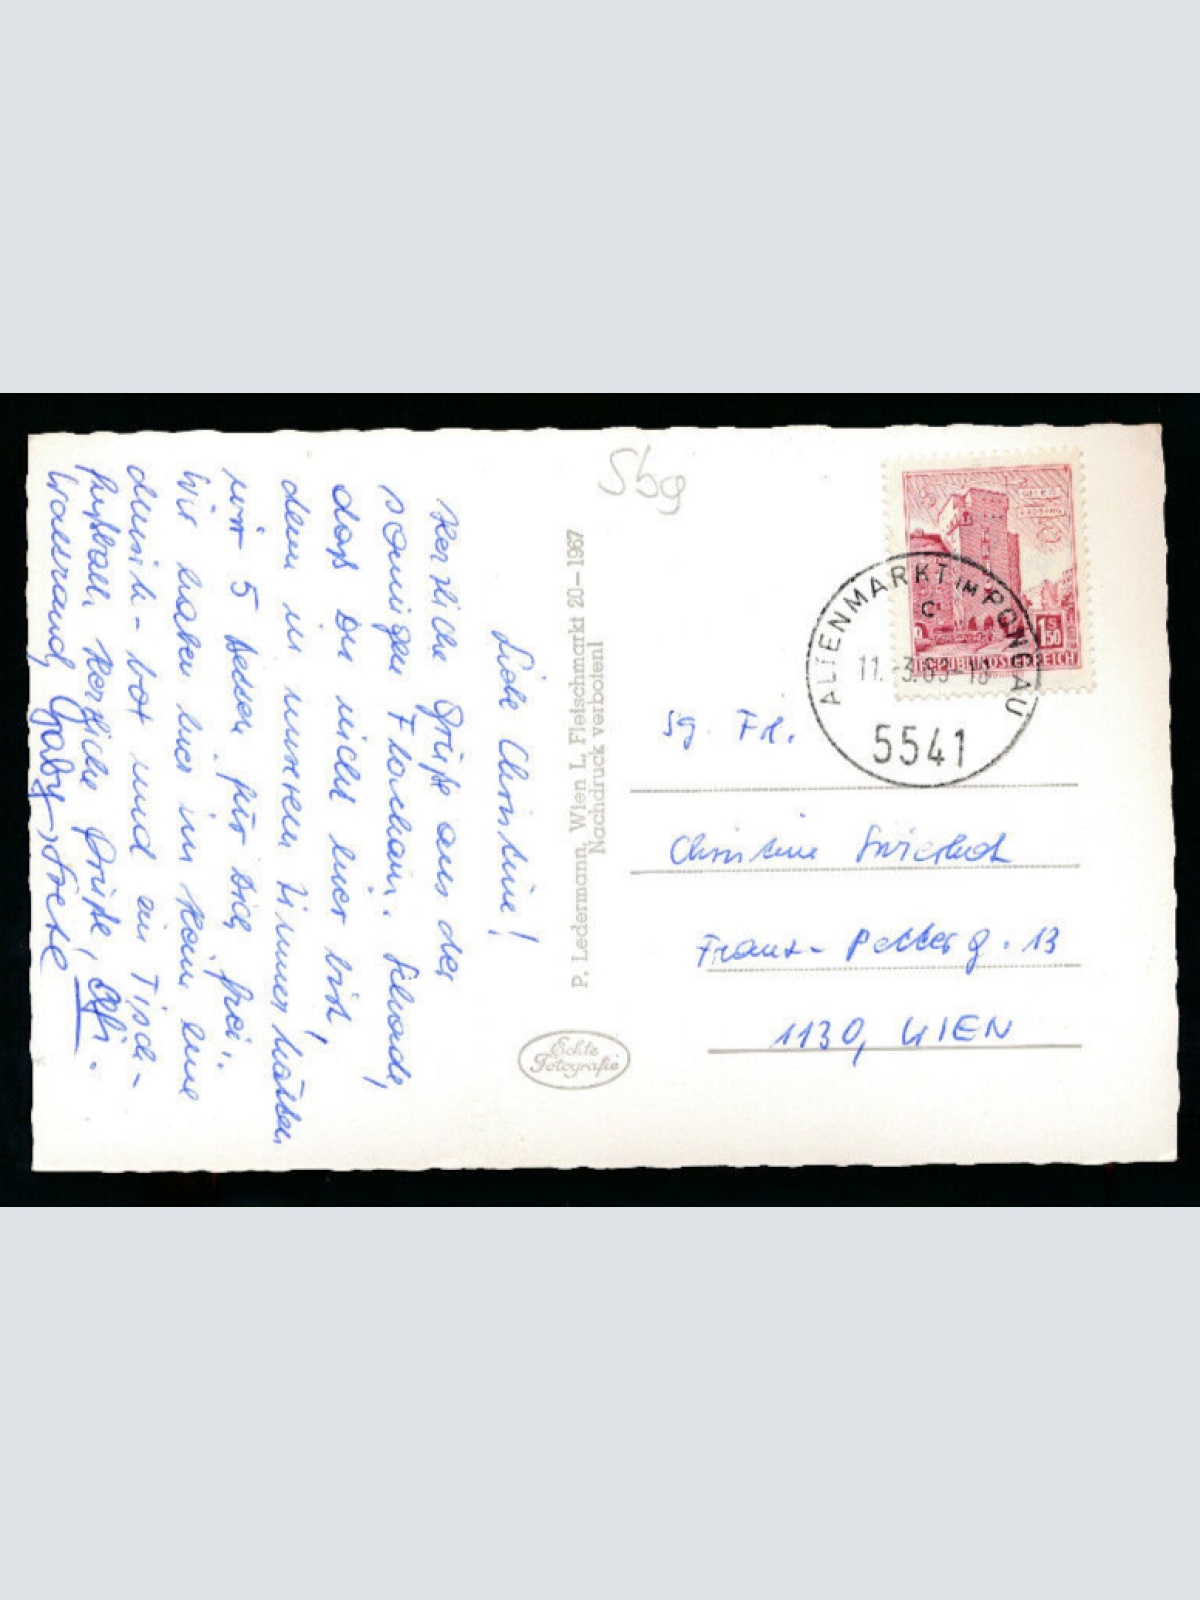 Liebe Christine!
Herzliche Grüße aus der
sonnigen Flachau. Schade,
daß Du nicht hier bist,
denn in unserem Zimmer hätten
wir 5 Betten für Dich frei.
Wir haben hier im Heim eine
Musik-box und ein Tisch-
fußball. Herzliche Grüße,
Waltraud, Gaby,
Sbg
P. Ledermann, Wien I., Fleischmarkt 20 – 1967
Nachdruck verboten!
Echte
Fotografie
WIEN
1.50
S
REPUBLIK ÖSTERREICH
ALTENMARKT IM PONGAU
c
11.-3.69-18
5541
Sg. Frl.
Christine
Franz- Petter g. 13
1130, WIEN